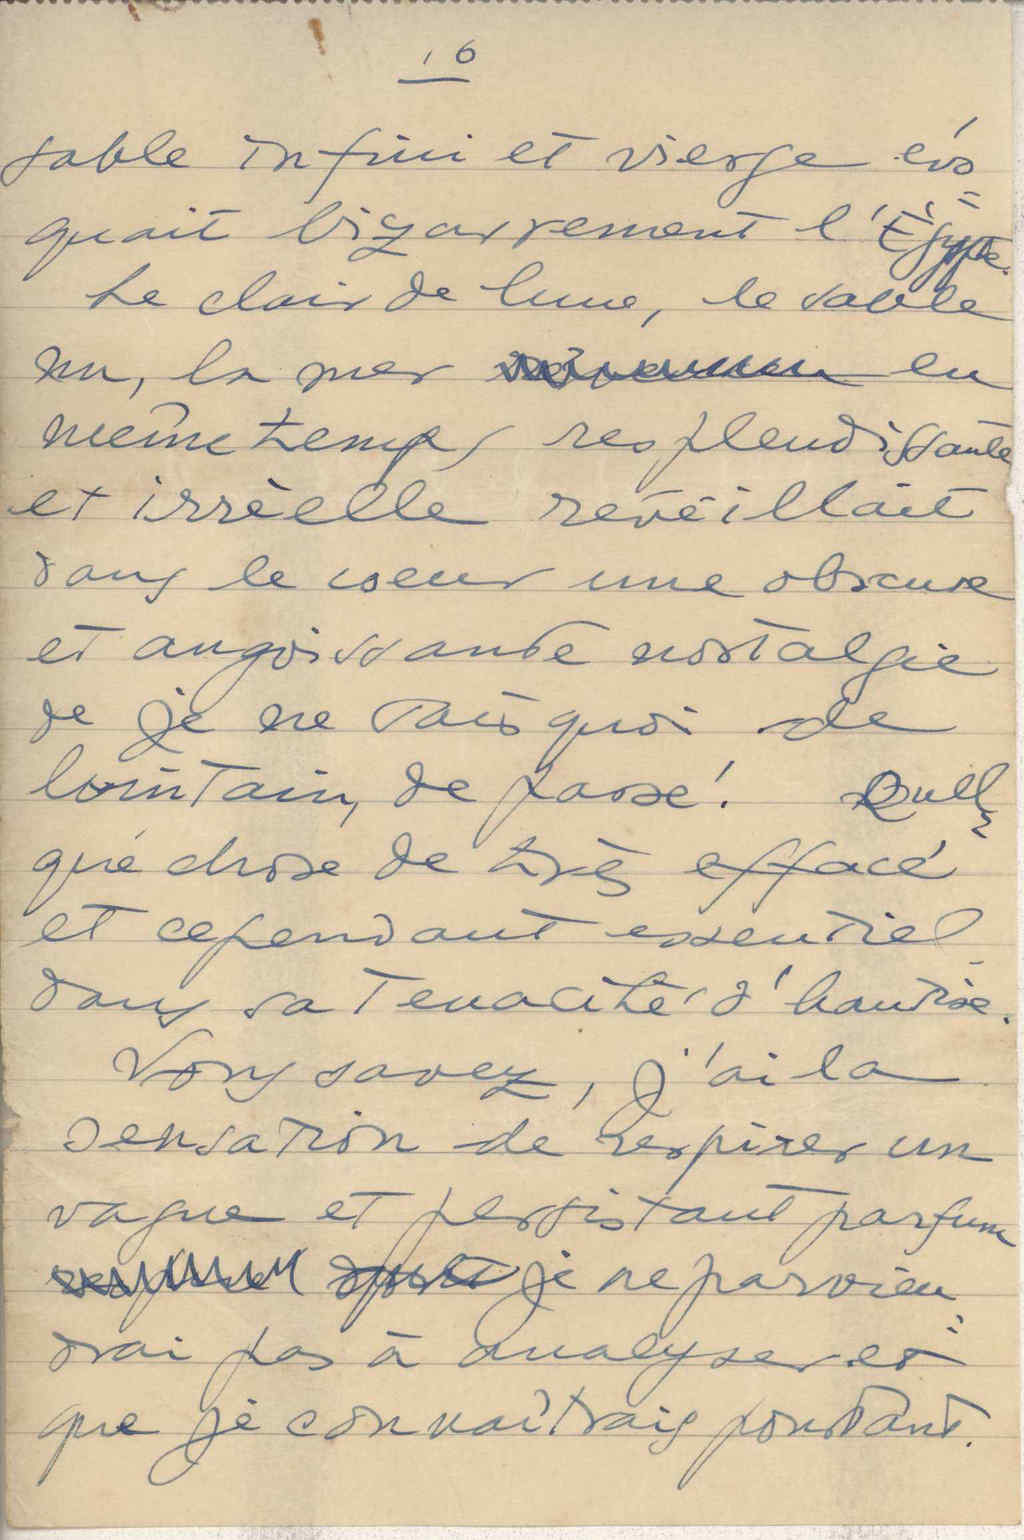 16
sable infini et vierge évo
quait bizarrement l'Égypte.
Le clair de lune, le sable
nu, la mer en
même temps resplendissante
et irréelle réveillait
dans le coeur une obscure
et angoissante nostalgie
de je ne sais quoi de
lointain, de passé! Quel-
que chose de très effacé
et cependant essentiel
dans sa tenacité d'hantise.
Vous savez, j'ai la
sensation de respirer un
vague et persistant parfum
je ne parvien-
drai pas à analyser et
que je connaîtrais pourtant.